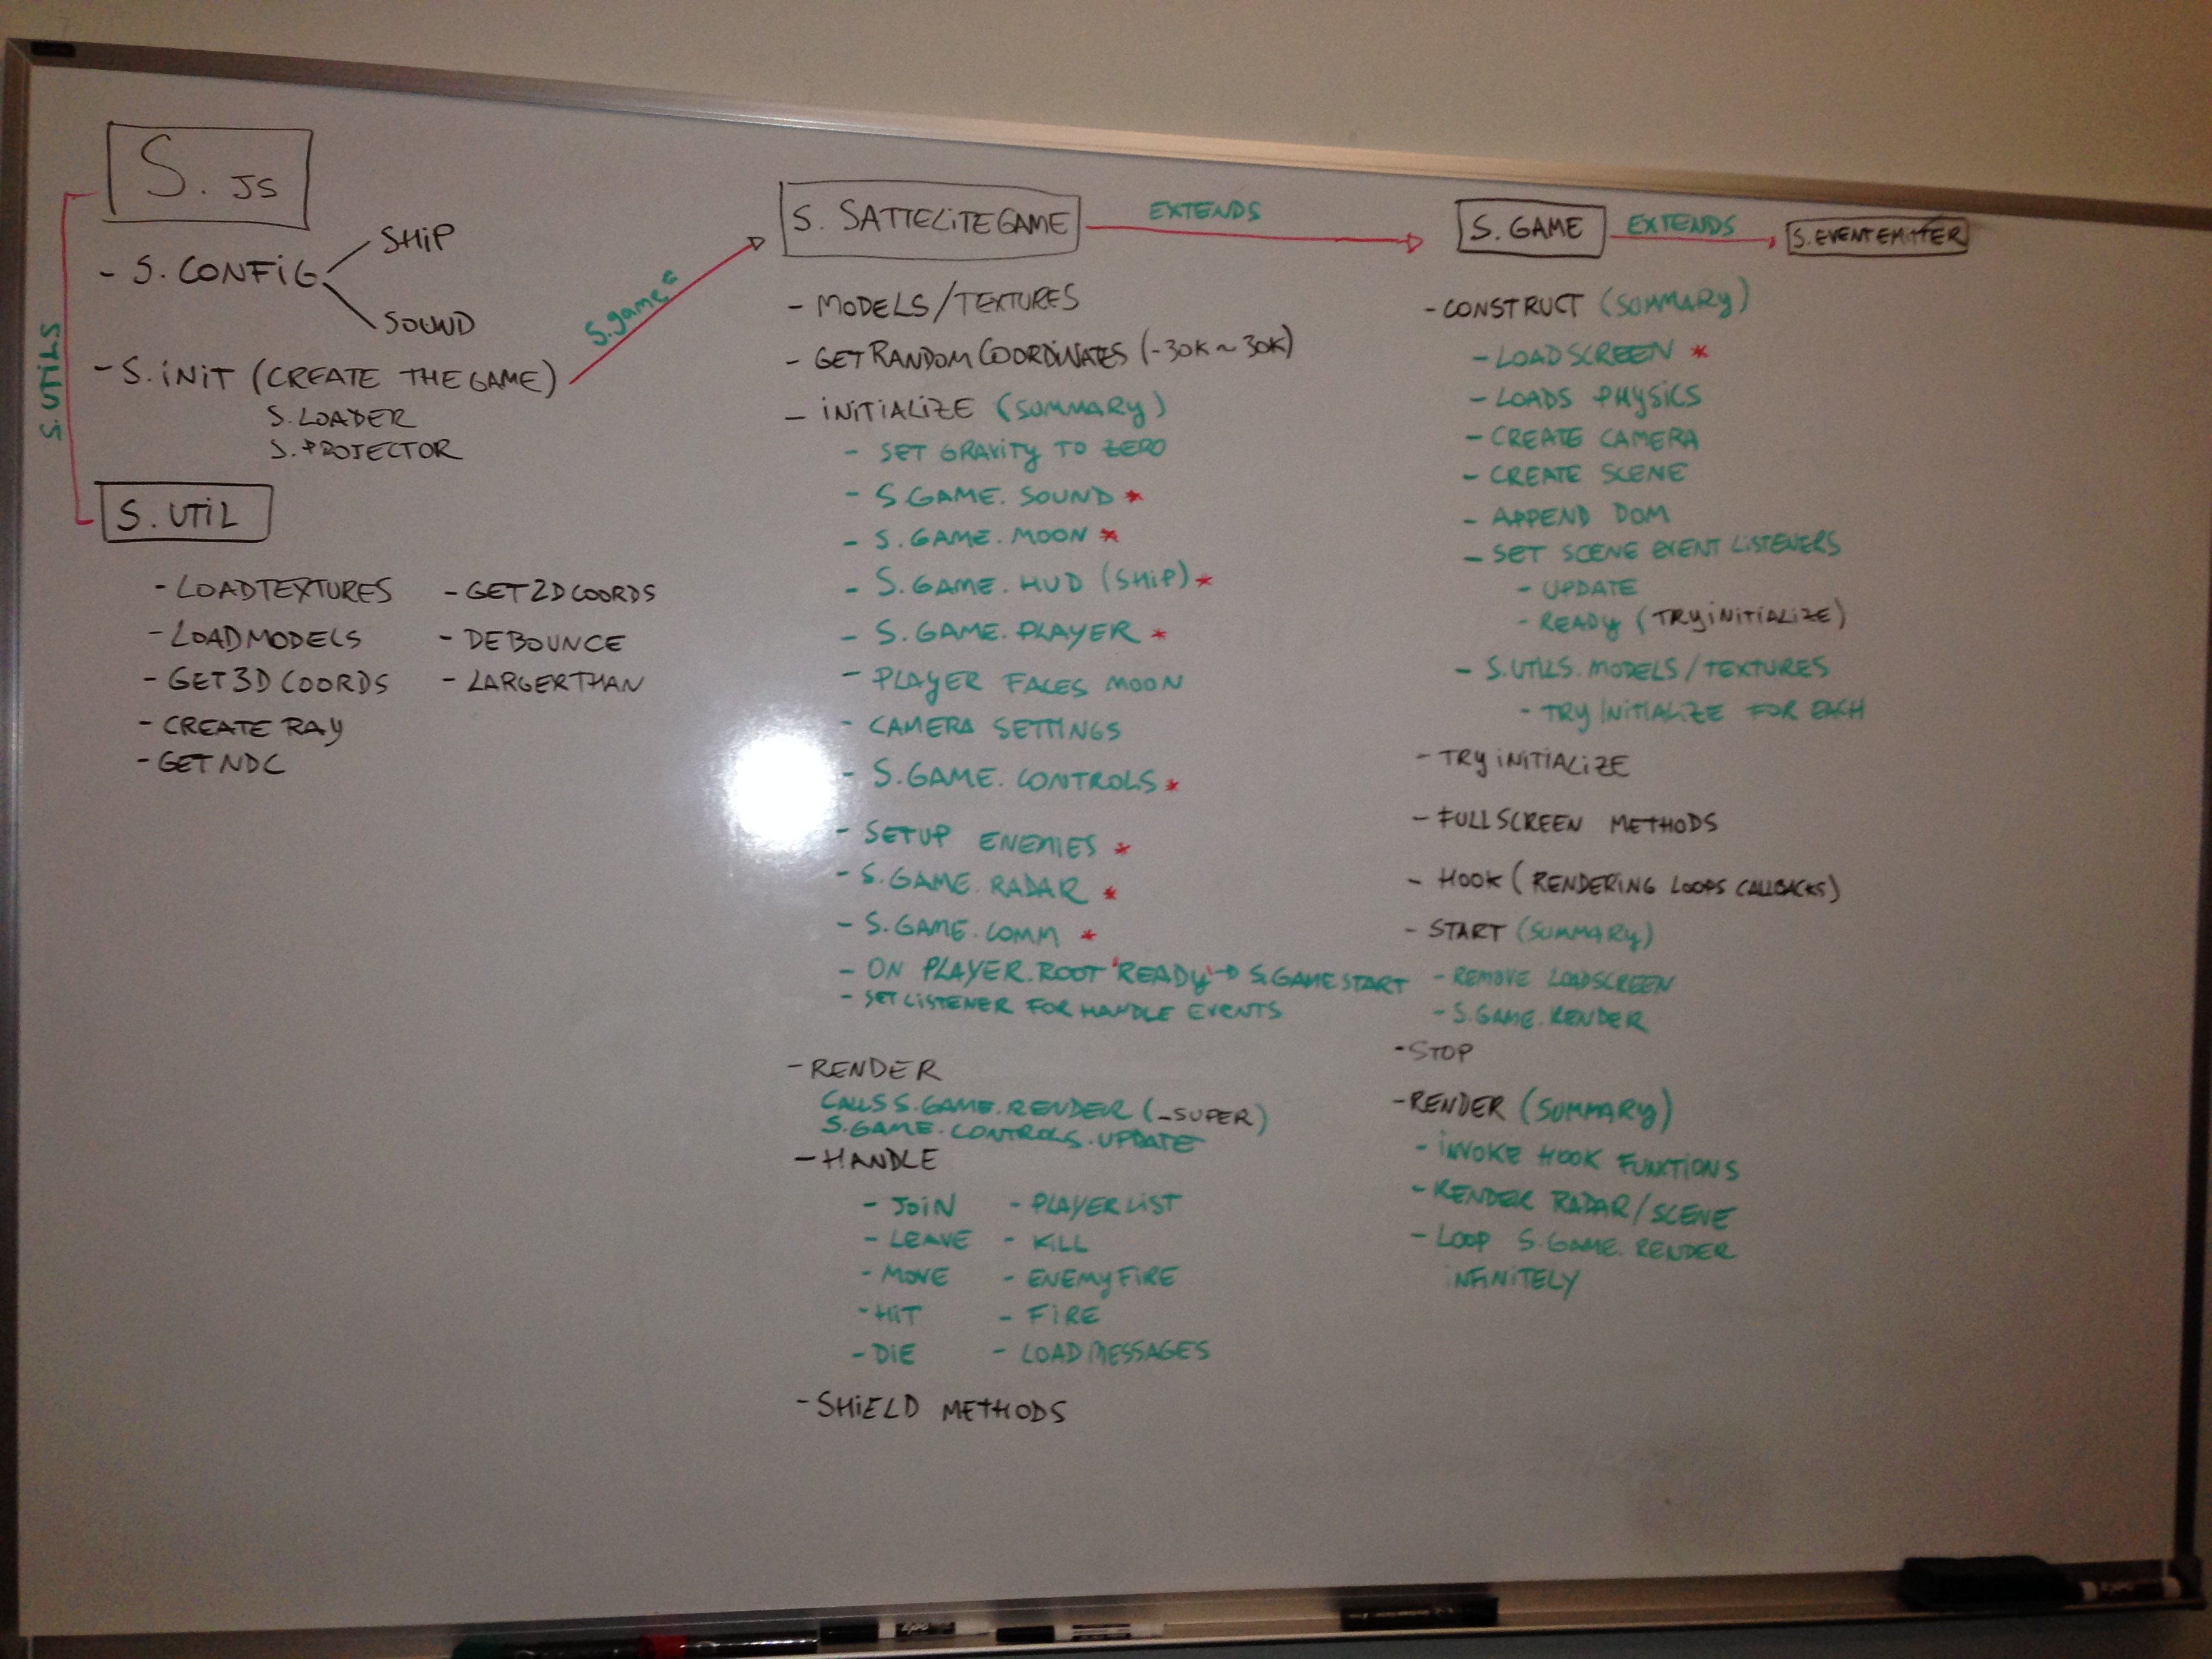 S. JS
- S. CONFIG
SHIP
SOUND
- S. INIT (CREATE THE GAME)
S. LOADER
S. PROJECTOR
S. UTILS
S. UTIL
- LOADTEXTURES
- LOADMODELS
- GET3DCOORDS
- CREATE RAY
- GETNDC
- GET2DCOORDS
- DEBOUNCE
- LARGERTHAN
S. SATTELITEGAME
EXTENDS
- MODELS/TEXTURES
- GETRANDOMCOORDINATES (-30K ~ 30K)
- INITIALIZE (SUMMARY)
- SET GRAVITY TO ZERO
- S.GAME. SOUND *
- S. GAME. MOON *
- S. GAME. HUD (SHIP) *
- S. GAME. PLAYER *
- PLAYER FACES MOON
- CAMERA SETTINGS
- S. GAME. CONTROLS *
- SETUP ENEMIES *
- S. GAME. RADAR *
- S. GAME. COMM *
- ON PLAYER. ROOT 'READY' → S.GAMESTART
- SET LISTENER FOR HANDLE EVENTS
- RENDER
CALLS S. GAME. RENDER (_SUPER)
S. GAME. CONTROLS. UPDATE
- HANDLE
- JOIN
- LEAVE
- MOVE
- HIT
- DIE
- PLAYERLIST
- KILL
- ENEMYFIRE
- FIRE
- LOADMESSAGES
- SHIELD METHODS
S. GAME
EXTENDS
S. EVENTEMITTER
- CONSTRUCT (SUMMARY)
- LOADSCREEN *
- LOADS PHYSICS
- CREATE CAMERA
- CREATE SCENE
- APPEND DOM
- SET SCENE EVENT LISTENERS
- UPDATE
- READY (TRYINITIALIZE)
- S. UTILS. MODELS/TEXTURES
- TRY INITIALIZE FOR EACH
- TRY INITIALIZE
- FULLSCREEN METHODS
- HOOK (RENDERING LOOPS CALLBACKS)
- START (SUMMARY)
- REMOVE LOADSCREEN
- S.GAME. RENDER
- STOP
- RENDER (SUMMARY)
- INVOKE HOOK FUNCTIONS
- RENDER RADAR/SCENE
- LOOP S. GAME. RENDER
INFINITELY